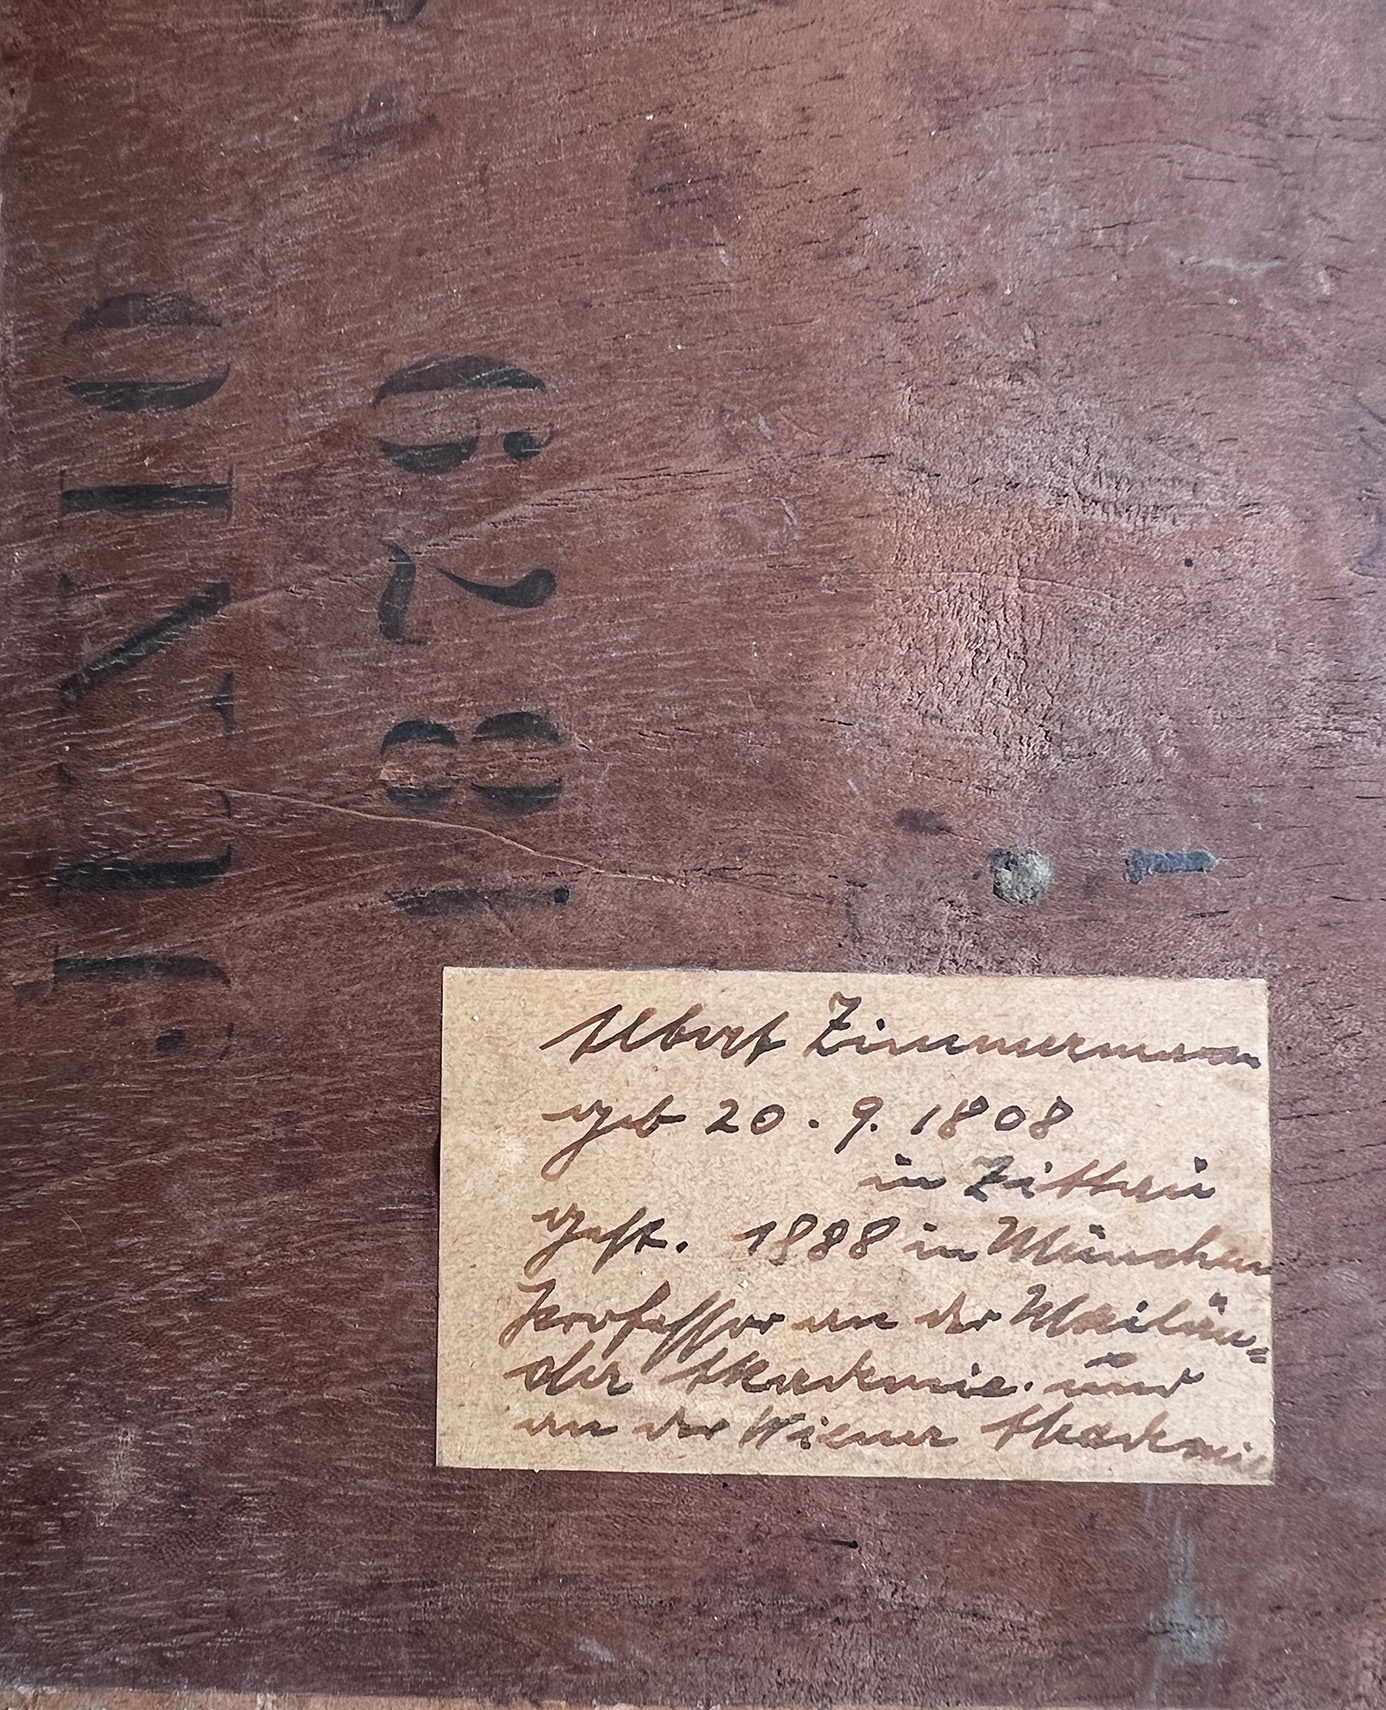 JUNIO
1879
Albert Zimmermann
geb 20. 9. 1808
in Zittau
gest. 1888 in München
Professor an der Mailän=
der Akademie. und
an der Wiener Akademie